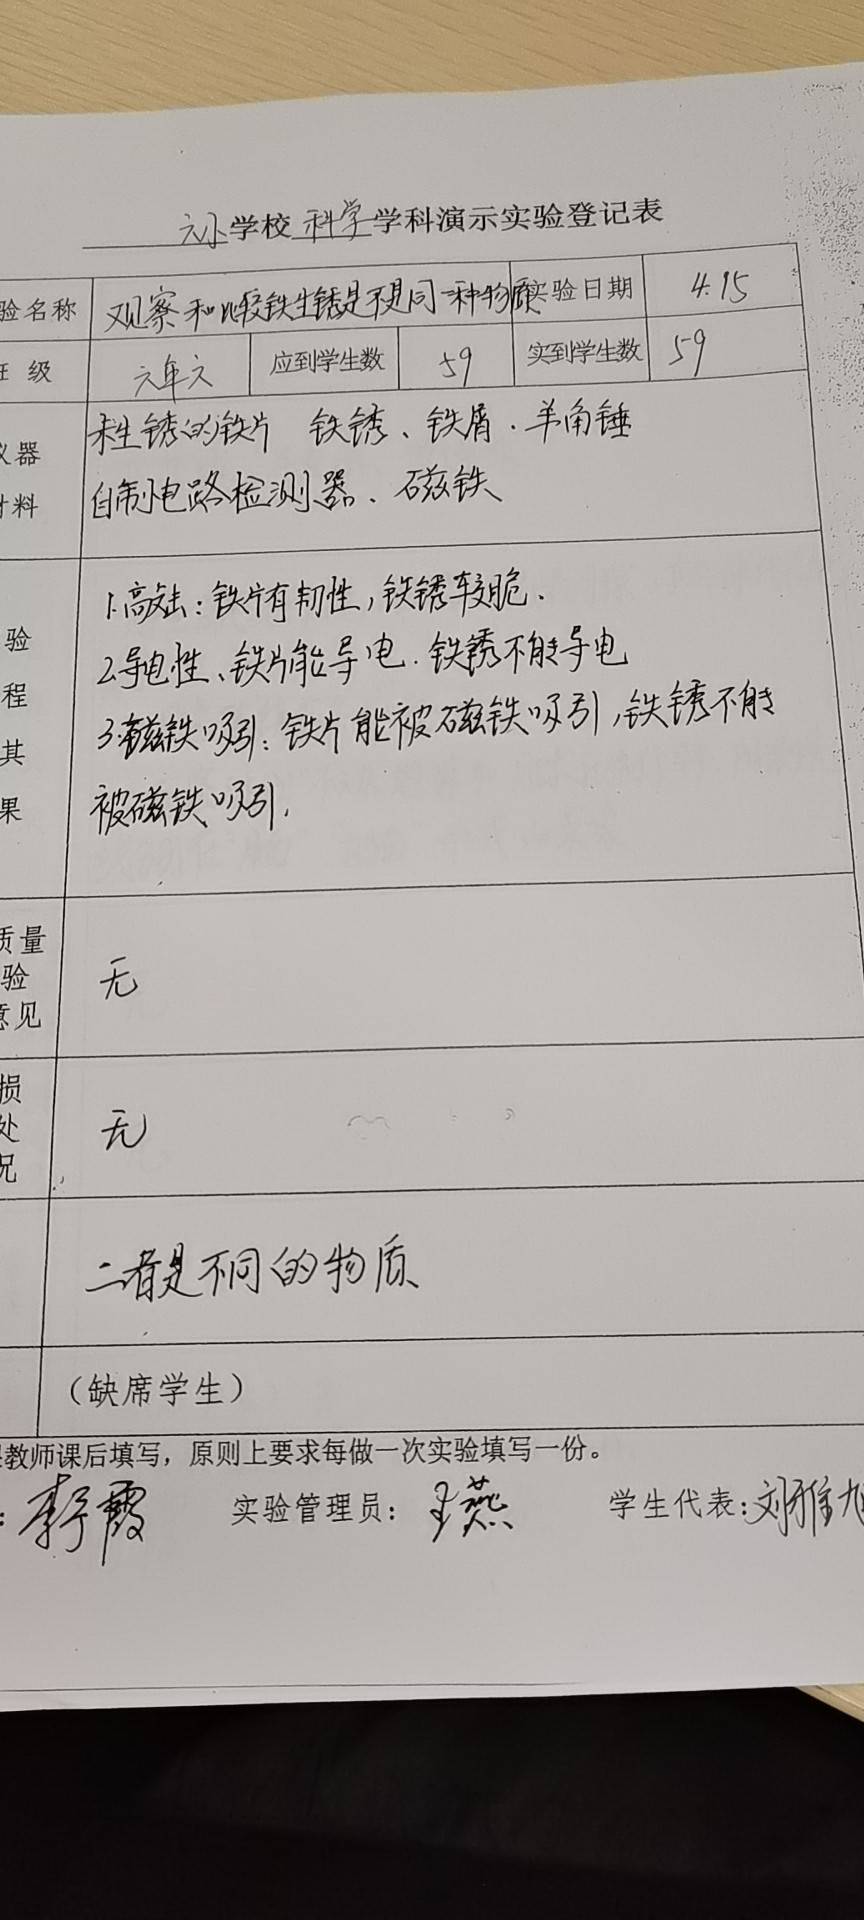 元小学校科学学科演示实验登记表
验名称 观察和比较铁生锈是不是同一种物质 实验日期 4.15
班级 六年六 应到学生数 59 实到学生数 59
仪器
材料
未生锈的铁片 铁锈、铁屑.羊角锤
自制电路检测器、磁铁
验
程
其
果
1.敲击:铁片有韧性,铁锈较脆.
2导电性、铁片能导电.铁锈不能导电
3.磁铁吸引:铁片能被磁铁吸引,铁锈不能
被磁铁吸引.
质量
验
意见
无
损
处
况
无
二者是不同的物质
(缺席学生)
教师课后填写,原则上要求每做一次实验填写一份。
: 李霞 实验管理员: 王燕 学生代表:刘雅旭